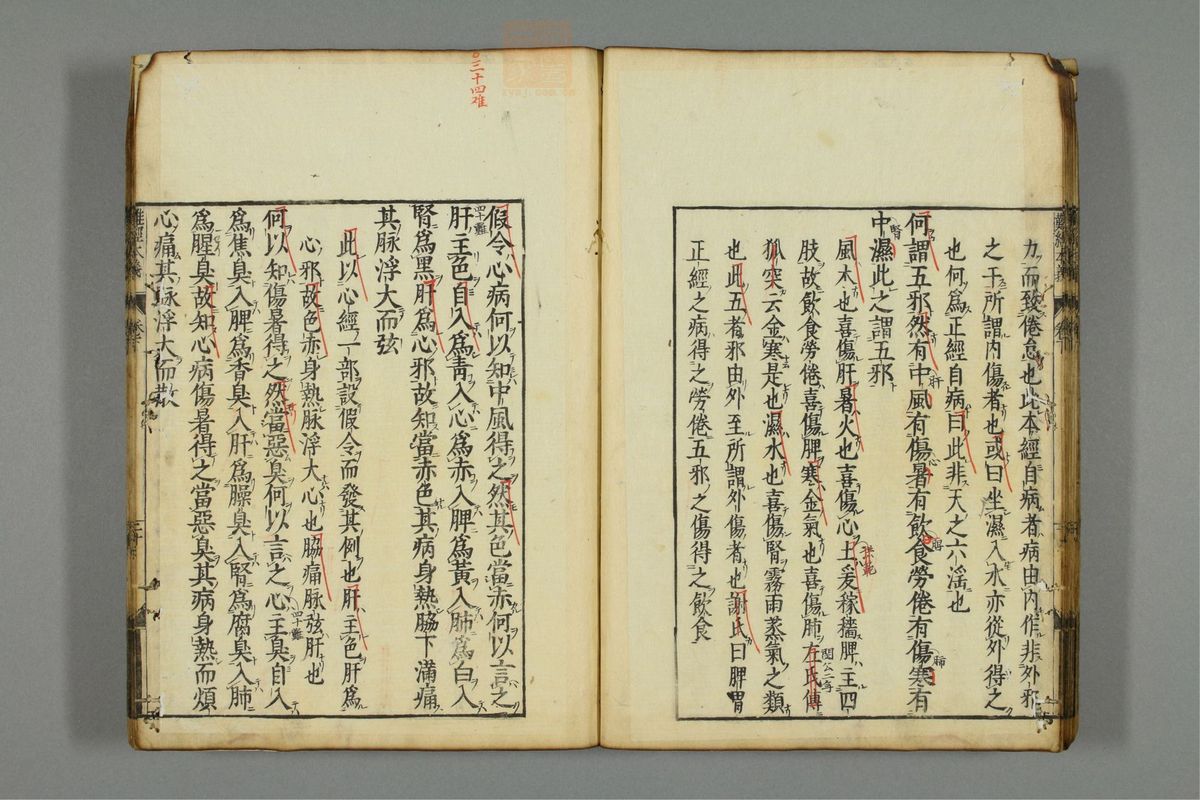 力而致倦怠也此本經自病者病由内作非外邪
之干所謂内傷者也或曰坐濕入水亦從外得之
也何爲正經自病曰此非天之六淫也
何謂五邪然有中風有傷暑有飲食勞倦有傷寒有
中濕此之謂五邪
風木也喜傷肝暑火也喜傷心土爰稼穡脾主四
肢故飲食勞倦喜傷脾寒金氣也喜傷肺左氏傳
狐突云金寒是也濕水也喜傷腎霧雨蒸氣之類
也此五者邪由外至所謂外傷者也謝氏曰脾胃
正經之病得之勞倦五邪之傷得之飲食
三十四难
假令心病何以知中風得之然其色當赤何以言之
肝主色自入爲靑入心爲赤入脾爲黃入肺爲白入
腎爲黑肝爲心邪故知當赤色其病身熱脇下滿痛
其脉浮大而弦
此以心經一部設假令而發其例也肝主色肝爲
心邪故色赤身熱脉浮大心也脇痛脉弦肝也
何以知傷暑得之然當惡臭何以言之心主臭自入
爲焦臭入脾爲香臭入肝爲臊臭入腎爲腐臭入肺
爲腥臭故知心病傷暑得之當惡臭其病身熱而煩
心痛其脉浮大而散